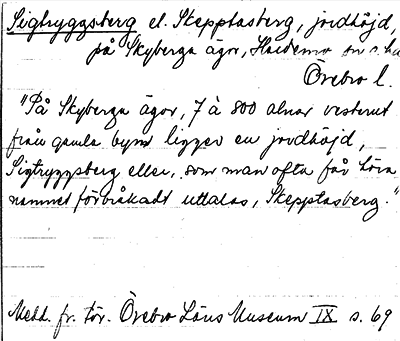 Sigtryggsberg el. Skepptasberg, jordhöjd,
på Skyberga ägor, Hardemo sn
Örebro l.
"På Skyberga ägor, 7 à 800 alnar vesterut
från gamla byn ligger en jordhöjd,
Sigtryggsberg eller, som man ofta får höra
namnet förbråkadt uttalas, Skepptasberg."
Medd. fr. för. Örebro Läns Museum IX s. 69